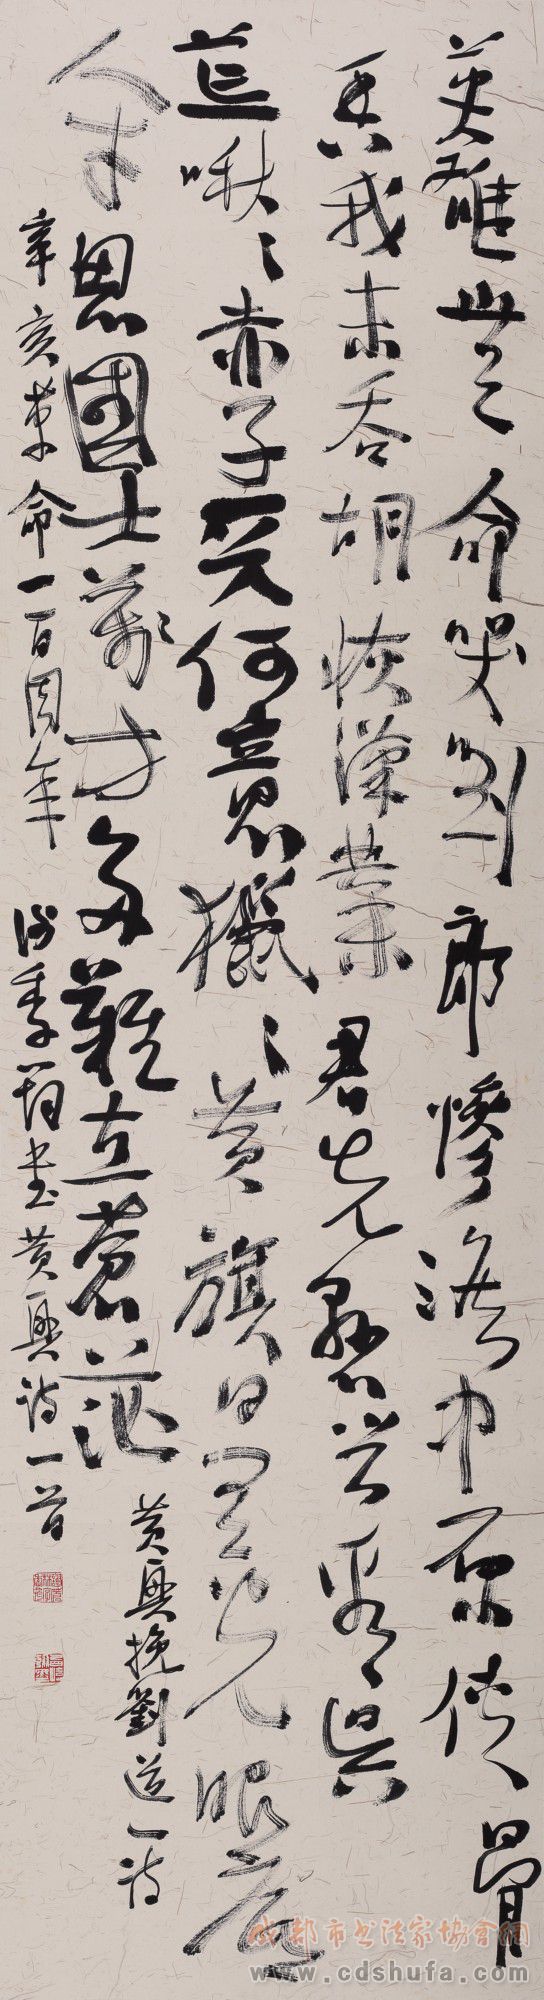 英雄無命哭劉郎慘澹中原俠骨
香我未吞胡恢漢業君先懸首看吳
荒啾々赤子天何意獵々黃旗日光眼底
人才思國士萬方多難立蒼茫
黃興挽劉道一詩
辛亥革命一百周年 謝季筠書黃興詩一首
成都市书法家协会网
www.cdshufa.com